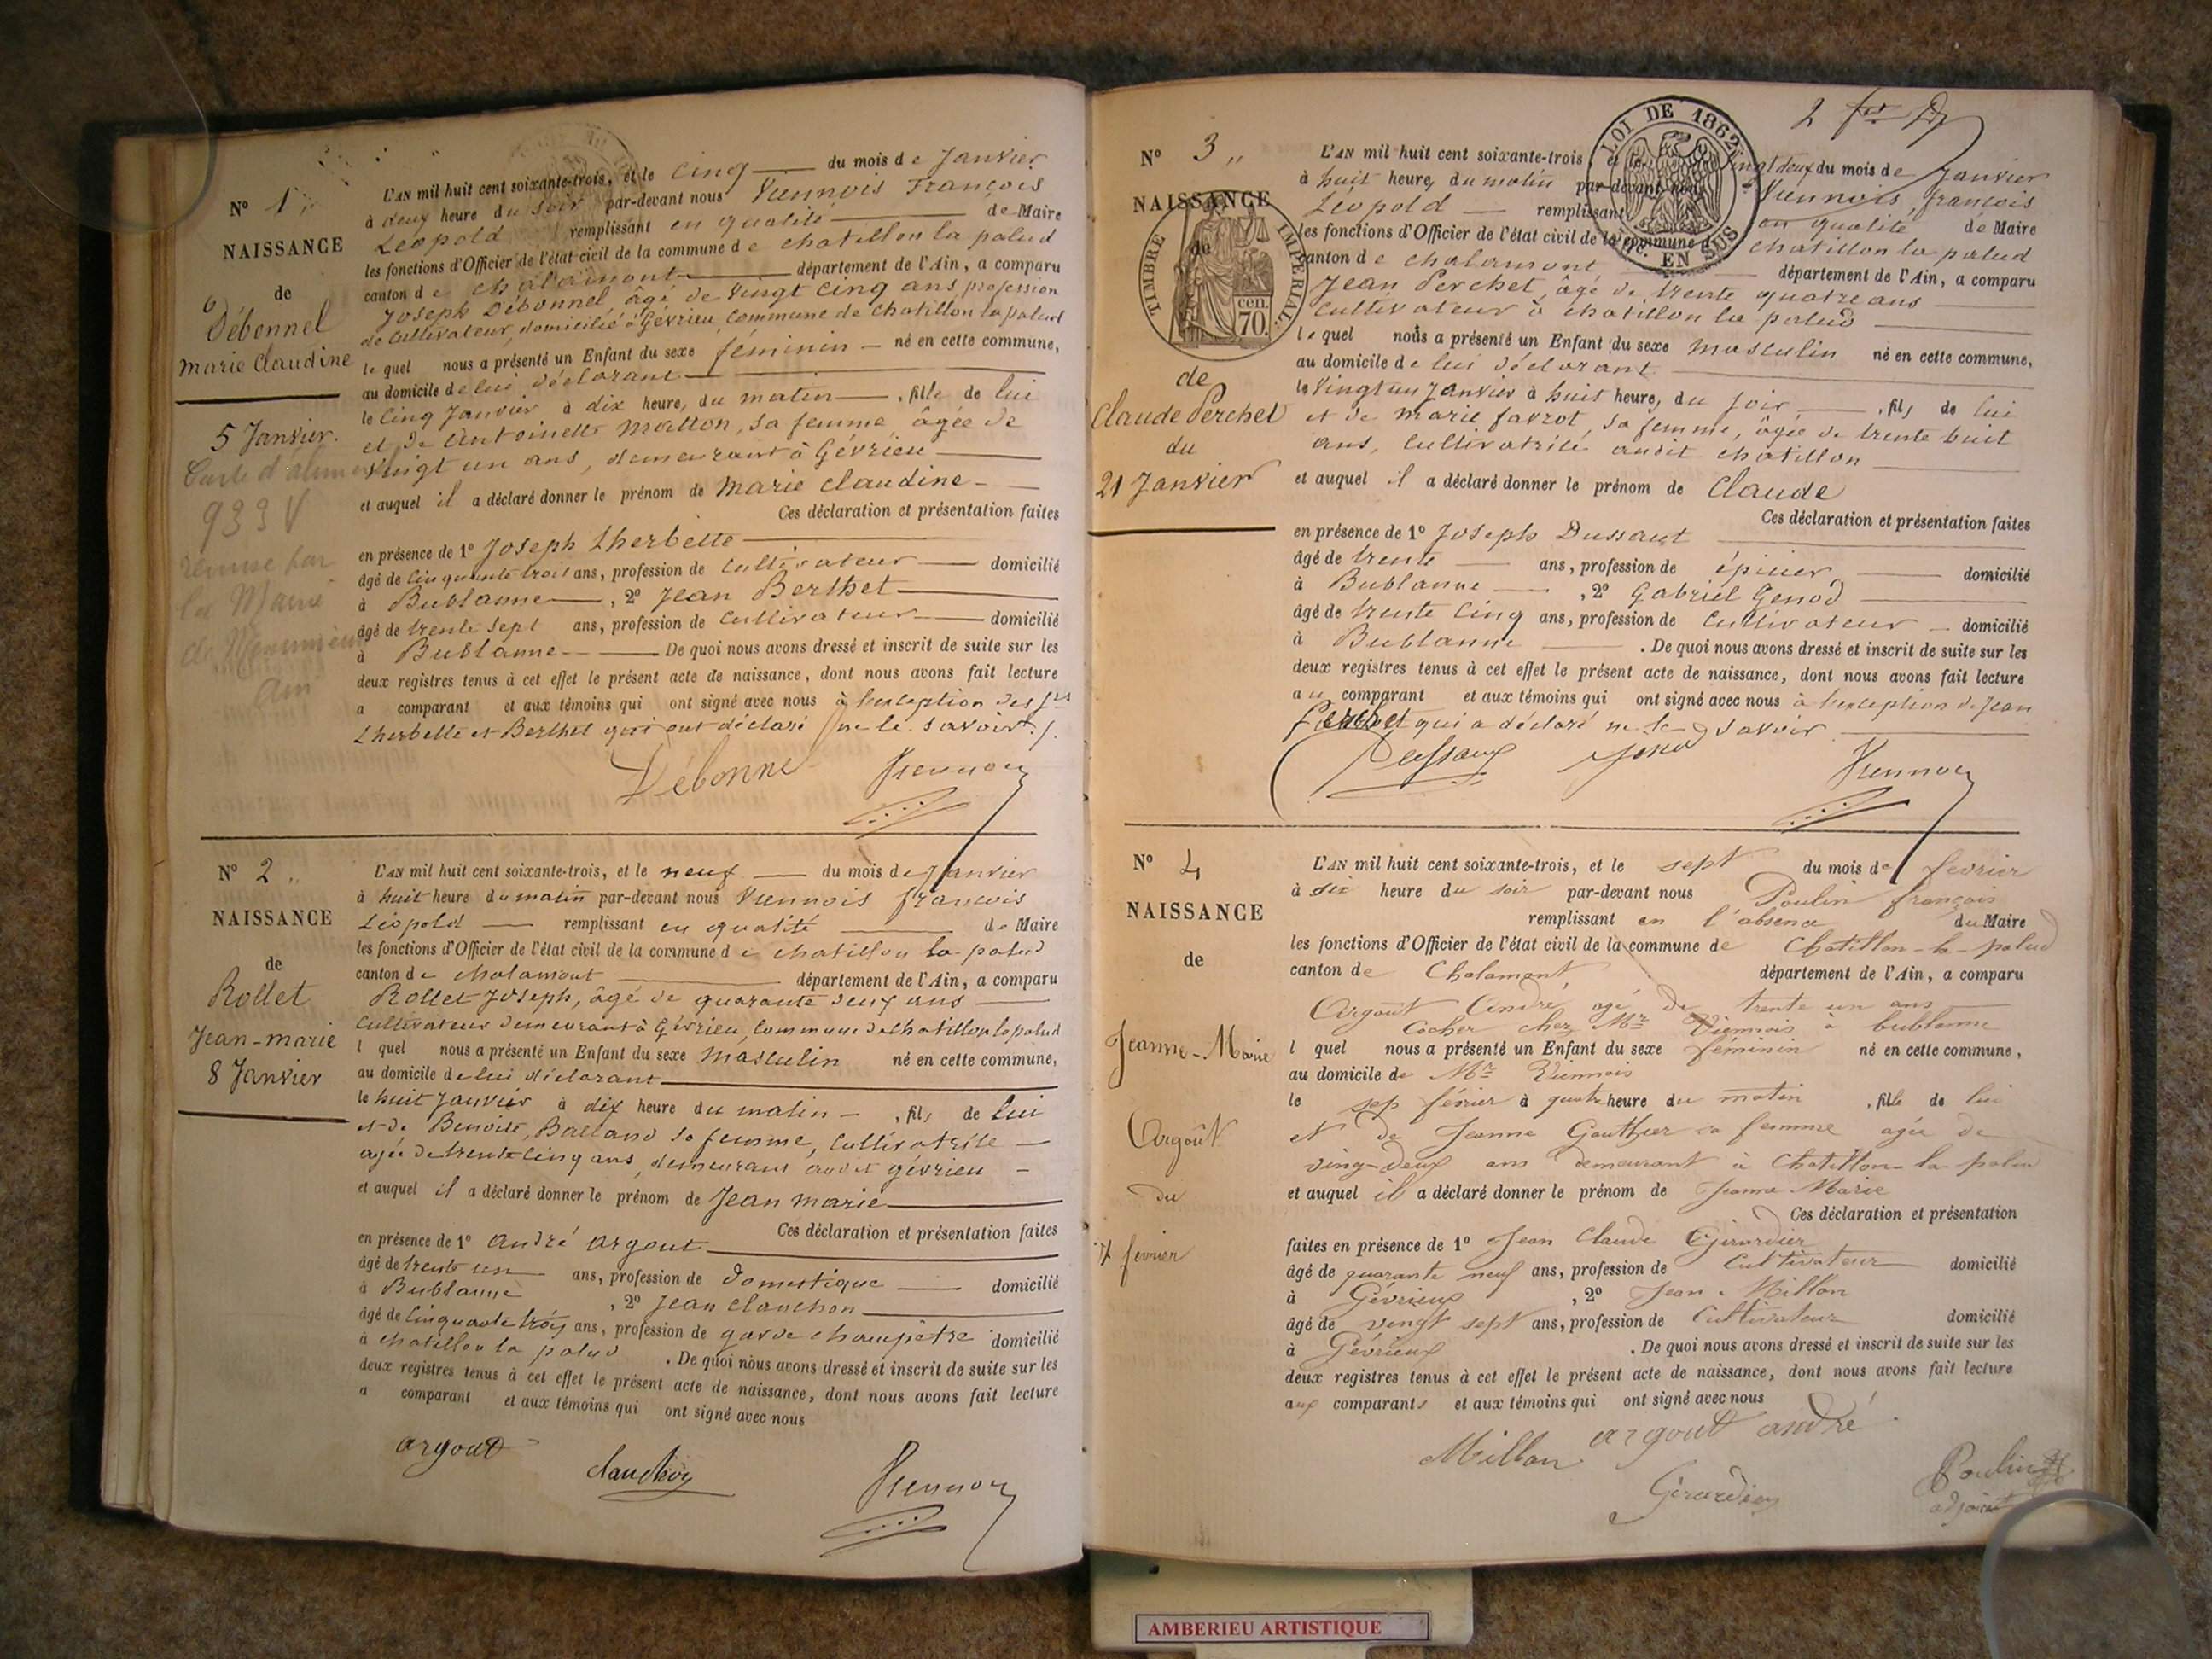 N° 1
NAISSANCE
de
Débonnel
Marie Claudine
5 Janvier.
939 V
remise par
la Mairie
Ain
L'AN mil huit cent soixante-trois, et le cinq du mois de Janvier
à deux heure du soir par-devant nous Viennois François
Léopold remplissant en qualité de Maire
les fonctions d'Officier de l'état civil de la commune de chatillon la palud
canton de chalamont département de l'Ain, a comparu
Joseph Débonnel âgé de vingt cinq ans profession
de cultivateur, domicilié à Gévrieu commune de chatillon la palud
lequel nous a présenté un Enfant du sexe féminin né en cette commune,
au domicile de lui déclarant
le cinq Janvier à dix heure, du matin, fille de lui
et de Antoinette Matton, sa femme âgée de
vingt un ans, demeurant à Gévrieu
et auquel il a déclaré donner le prénom de Marie Claudine
Ces déclaration et présentation faites
en présence de 1° Joseph Lherbette
âgé de cinquante trois ans, profession de cultivateur domicilié
à Bublanne, 2° Jean Berthet
âgé de trente sept ans, profession de cultivateur domicilié
à Bublanne De quoi nous avons dressé et inscrit de suite sur les
deux registres tenus à cet effet le présent acte de naissance, dont nous avons fait lecture
a comparant et aux témoins qui ont signé avec nous à l'exception des Srs
Lherbette et Berthet qui ont déclaré ne le savoir.
Débonnel Viennois
N° 2
NAISSANCE
de
Rollet
Jean-marie
8 Janvier
L'AN mil huit cent soixante-trois, et le neuf du mois de Janvier
à huit heure du matin par-devant nous Viennois françois
Léopold remplissant en qualité de Maire
les fonctions d'Officier de l'état civil de la commune de chatillon la palud
canton de chalamont département de l'Ain, a comparu
Rollet Joseph, âgé de quarante deux ans
cultivateur demeurant à Gévrieu, commune de chatillon la palud
l quel nous a présenté un Enfant du sexe masculin né en cette commune,
au domicile de lui déclarant
le huit Janvier à dix heure du matin, fils de lui
et de Benoite, Balland sa femme, cultivatrice
agée de trente cinq ans, demeurant audit gévrieu
et auquel il a déclaré donner le prénom de Jean marie
Ces déclaration et présentation faites
en présence de 1° André argout
âgé de trente un ans, profession de Domestique domicilié
à Bublanne, 2° Jean clanchon
âgé de cinquante trois ans, profession de garde champêtre domicilié
à chatillon la palud. De quoi nous avons dressé et inscrit de suite sur les
deux registres tenus à cet effet le présent acte de naissance, dont nous avons fait lecture
a comparant et aux témoins qui ont signé avec nous
argout clanchon Viennois
2
LOI DE 1862
EN SUS
TIMBRE IMPERIAL
70 cen.
N° 3
NAISSANCE
de
de
Claude Perchet
du
21 Janvier
L'AN mil huit cent soixante-trois, et le vingt deux du mois de Janvier
à huit heure, du matin par-devant nous Viennois françois
Léopold remplissant en qualité de Maire
les fonctions d'Officier de l'état civil de la commune d chatillon la palud
canton de chalamont département de l'Ain, a comparu
Jean Perchet, âgé de trente quatre ans
cultivateur à chatillon la palud
lequel nous a présenté un Enfant du sexe masculin né en cette commune,
au domicile de lui déclarant
le vingt un Janvier à huit heure, du soir, fils de lui
et de marie favrot, sa femme, âgée de trente huit
ans, cultivatrice audit chatillon
et auquel il a déclaré donner le prénom de Claude
Ces déclaration et présentation faites
en présence de 1° Joseph Dussaut
âgé de trente ans, profession de épicier domicilié
à Bublanne, 2° Gabriel Genod
âgé de trente cinq ans, profession de cultivateur domicilié
à Bublanne. De quoi nous avons dressé et inscrit de suite sur les
deux registres tenus à cet effet le présent acte de naissance, dont nous avons fait lecture
au comparant et aux témoins qui ont signé avec nous à l'exception de Jean
Perchet qui a déclaré ne le savoir
Viennois
N° 4
NAISSANCE
de
Jeanne-Marie
Argoût
du
7 fevrier
L'AN mil huit cent soixante-trois, et le sept du mois de fevrier
à six heure du soir par-devant nous Poulin françois
remplissant en l'absence du Maire
les fonctions d'Officier de l'état civil de la commune de Chatillon-la-palud
canton de Chalamont département de l'Ain, a comparu
Argout André, agé de trente un ans
Cocher chez Mr Viennois à bublanne
l quel nous a présenté un Enfant du sexe féminin né en cette commune,
au domicile de Mr Viennois
le sep février à quatre heure du matin, fille de lui
et de Jeanne Gauthier sa femme agée de
ving-deux ans demeurant à Chatillon-la-palud
et auquel il a déclaré donner le prénom de Jeanne Marie
Ces déclaration et présentation
faites en présence de 1° Jean Claude Girardier
âgé de quarante neuf ans, profession de Cultivateur domicilié
à Gévrieux, 2° Jean Millon
âgé de vingt sept ans, profession de Cultivateur domicilié
à Gévrieux. De quoi nous avons dressé et inscrit de suite sur les
deux registres tenus à cet effet le présent acte de naissance, dont nous avons fait lecture
aux comparants et aux témoins qui ont signé avec nous
Millon argout andré
Girardier Poulin
adjoint
AMBERIEU ARTISTIQUE